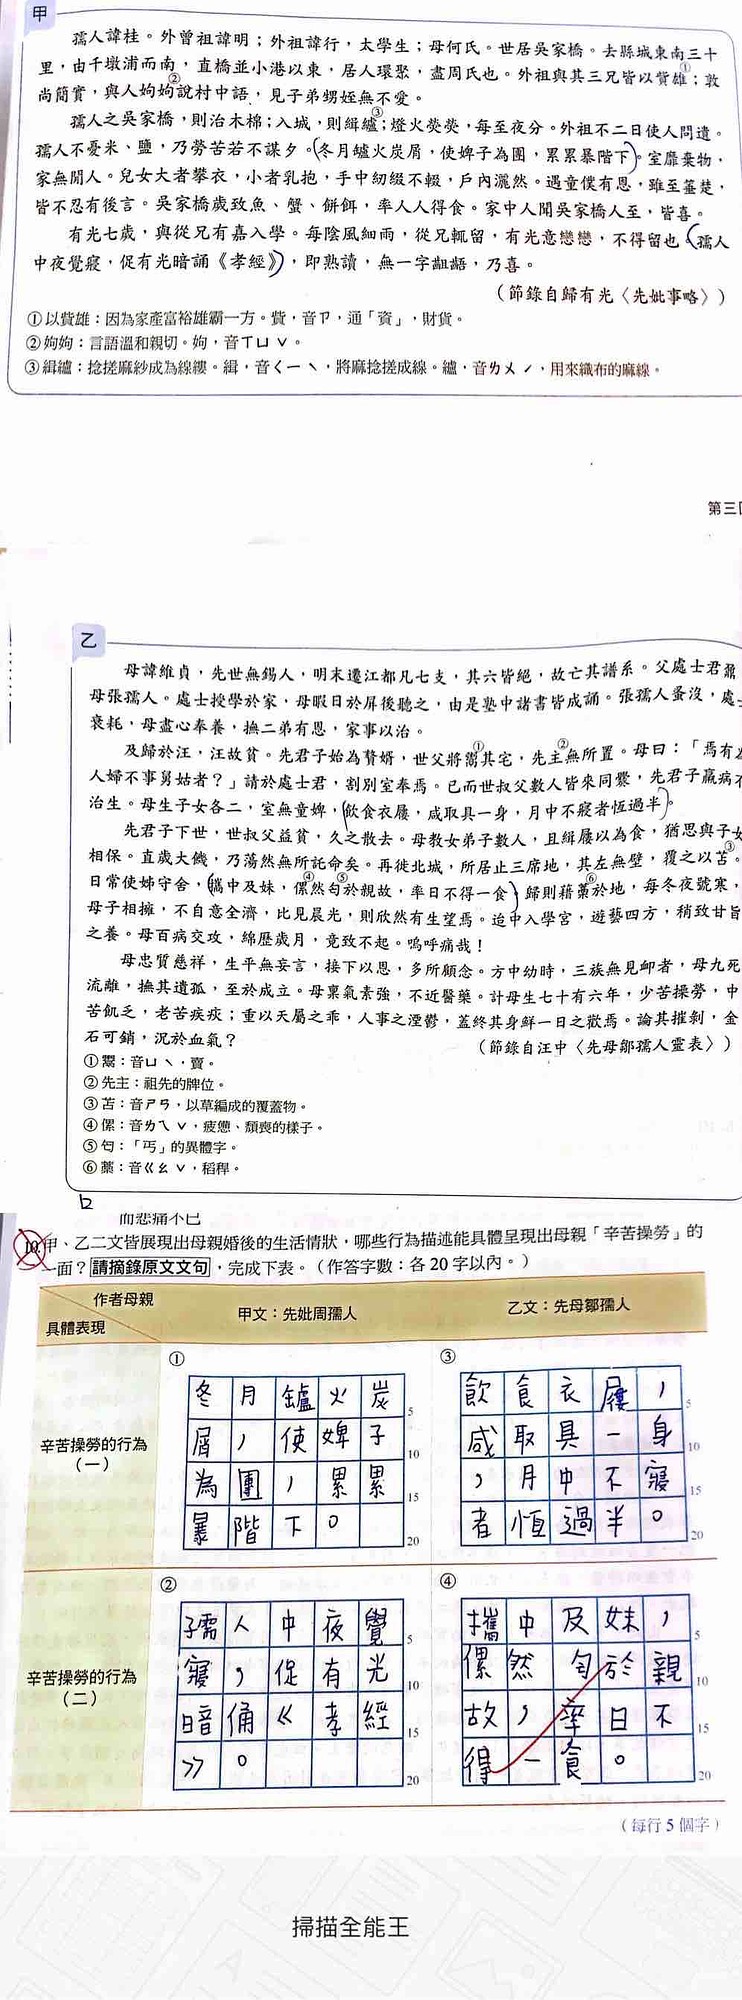 甲
孺人諱桂。外曾祖諱明；外祖諱行，太學生；母何氏。世居吳家橋。去縣城東南三十
里，由千墩浦而南，直橋並小港以東，居人環聚，盡周氏也。外祖與其三兄皆以貲雄①；敦
尚簡實，與人姁姁②說村中語，見子弟甥姪無不愛。
孺人之吳家橋，則治木棉；入城，則緝纑③；燈火熒熒，每至夜分。外祖不二日使人問遺。
孺人不憂米、鹽，乃勞苦若不謀夕。(冬月罏火炭屑，使婢子為團，累累暴階下)。室靡棄物，
家無閒人。兒女大者攀衣，小者乳抱，手中紉綴不輟，戶內灑然。遇童僕有恩，雖至箠楚，
皆不忍有後言。吳家橋歲致魚、蟹、餅餌，率人人得食。家中人聞吳家橋人至，皆喜。
有光七歲，與從兄有嘉入學。每陰風細雨，從兄輒留，有光意戀戀，不得留也。(孺人
中夜覺寢，促有光暗誦《孝經》)，即熟讀，無一字齟齬，乃喜。
（節錄自歸有光〈先妣事略〉）
①以貲雄：因為家產富裕雄霸一方。貲，音ㄗ，通「資」，財貨。
②姁姁：言語溫和親切。姁，音ㄒㄩˇ。
③緝纑：捻搓麻紗成為線縷。緝，音ㄑㄧˋ，將麻捻搓成線。纑，音ㄌㄨˊ，用來織布的麻線。
第三
乙
母諱維貞，先世無錫人，明末遷江都凡七支，其六皆絕，故亡其譜系。父處士君鼐
母張孺人。處士授學於家，母暇日於屏後聽之，由是塾中諸書皆成誦。張孺人蚤沒，處
衰耗，母盡心奉養，撫二弟有恩，家事以治。
及歸於汪，汪故貧。先君子始為贅婿，世父將鬻①其宅，先主②無所置。母曰：「焉有為
人婦不事舅姑者？」請於處士君，割別室奉焉。已而世叔父數人皆來同爨，先君子羸病不
治生。母生子女各二，室無童婢，(飲食衣屨，咸取具一身，月中不寢者恆過半)。
先君子下世，世叔父益貧，久之散去。母教女弟子數人，且緝屨以為食，猶思與子女
相保。直歲大饑，乃蕩然無所託命矣。再徙北城，所居止三席地，其左無壁，覆之以苫③。
日常使姊守舍，(攜中及妹，傫④然匄⑤於親故，率日不得一食)，歸則藉藳⑥於地，每冬夜號寒，
母子相擁，不自意全濟，比見晨光，則欣然有生望焉。迨中入學宮，遊藝四方，稍致甘旨
之養。母百病交攻，綿歷歲月，竟致不起。嗚呼痛哉！
母忠質慈祥，生平無妄言，接下以恩，多所顧念。方中幼時，三族無見卹者，母九死
流離，撫其遺孤，至於成立。母稟氣素強，不近醫藥。計母生七十有六年，少苦操勞，中
苦飢乏，老苦疾疢；重以天屬之乖，人事之湮鬱，蓋終其身鮮一日之歡焉。論其摧剝，金
石可銷，況於血氣？
（節錄自汪中〈先母鄒孺人靈表〉）
①鬻：音ㄩˋ，賣。
②先主：祖先的牌位。
③苫：音ㄕㄢ，以草編成的覆蓋物。
④傫：音ㄌㄟˇ，疲憊、頹喪的樣子。
⑤匄：「丐」的異體字。
⑥藳：音ㄍㄠˇ，稻稈。
而悲痛不已
10.甲、乙二文皆展現出母親婚後的生活情狀，哪些行為描述能具體呈現出母親「辛苦操勞」的
一面？請摘錄原文文句，完成下表。（作答字數：各 20 字以內。）
作者母親
具體表現
甲文：先妣周孺人
乙文：先母鄒孺人
辛苦操勞的行為
（一）
①
冬月鑪火炭
5
屑，使婢子
10
為團，累累
15
暴階下。
20
③
飲食衣屨，
5
咸取具一身
10
，月中不寢
15
者恆過半。
20
辛苦操勞的行為
（二）
②
孺人中夜覺
5
寢，促有光
10
暗俑《孝經
15
》。
20
④
攜中及妹，
5
傫然匄於親
10
故，率日不
15
得一食。
20
（每行 5 個字）
掃描全能王